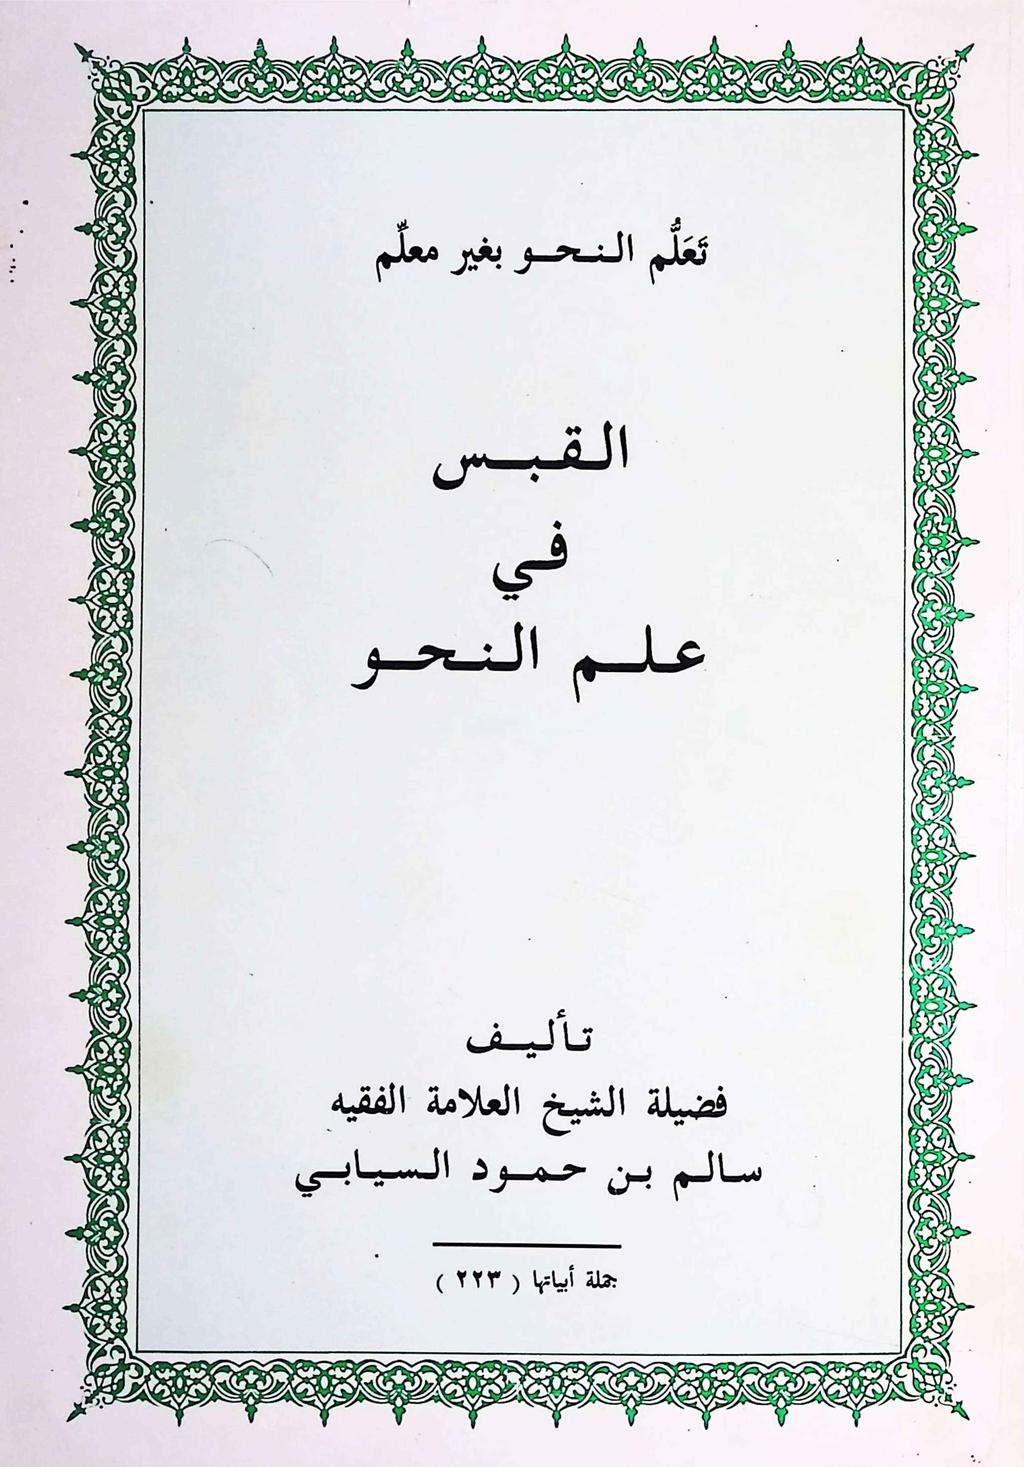 تَعَلُّم النحو بغير معلِّم
القبس
في
علم النحو
تأليف
فضيلة الشيخ العلامة الفقيه
سالم بن حمود السيابي
جملة أبياتها ( ٢٢٣ )